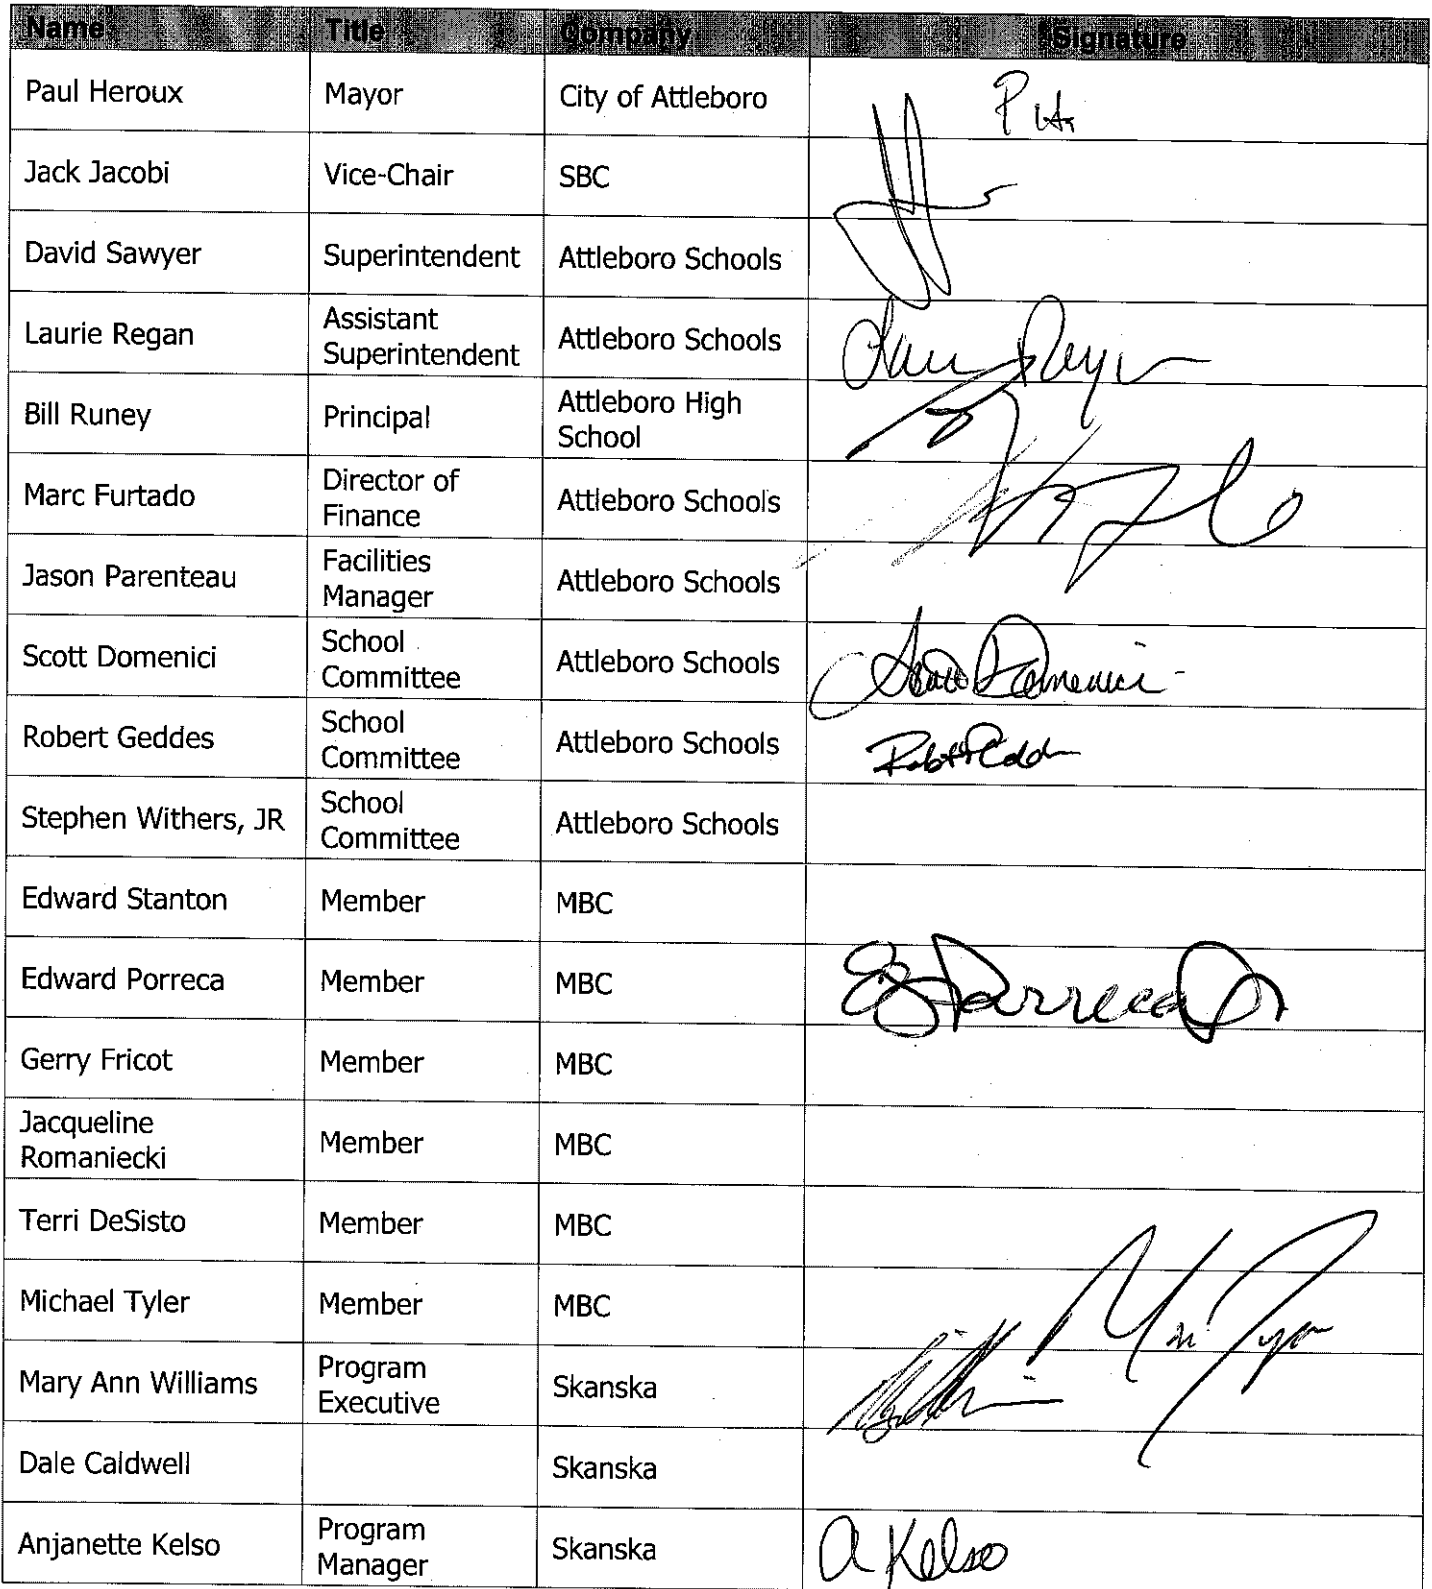 Name Title Company Signature
Paul Heroux Mayor City of Attleboro P H.
Jack Jacobi Vice-Chair SBC
David Sawyer Superintendent Attleboro Schools
Laurie Regan Assistant Superintendent Attleboro Schools
Bill Runey Principal Attleboro High School
Marc Furtado Director of Finance Attleboro Schools
Jason Parenteau Facilities Manager Attleboro Schools
Scott Domenici School Committee Attleboro Schools Scott Domenici
Robert Geddes School Committee Attleboro Schools
Stephen Withers, JR School Committee Attleboro Schools
Edward Stanton Member MBC
Edward Porreca Member MBC E J Porreca Jr
Gerry Fricot Member MBC
Jacqueline Romaniecki Member MBC
Terri DeSisto Member MBC
Michael Tyler Member MBC
Mary Ann Williams Program Executive Skanska
Dale Caldwell Skanska
Anjanette Kelso Program Manager Skanska A Kelso